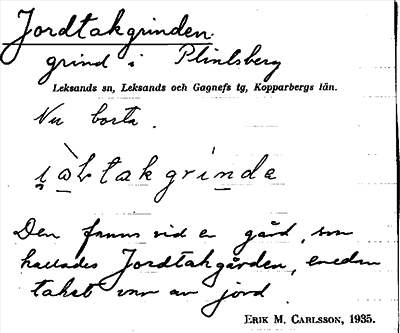 Jordtakgrinden.
grind i Plintsberg
Leksands sn, Leksands och Gagnefs tg, Kopparbergs län.
Nu borta.
takgrinda
Den fanns vid en gård, som
kallades Jordtakgården, emedan
taket var av jord
ERIK M. CARLSSON, 1935.